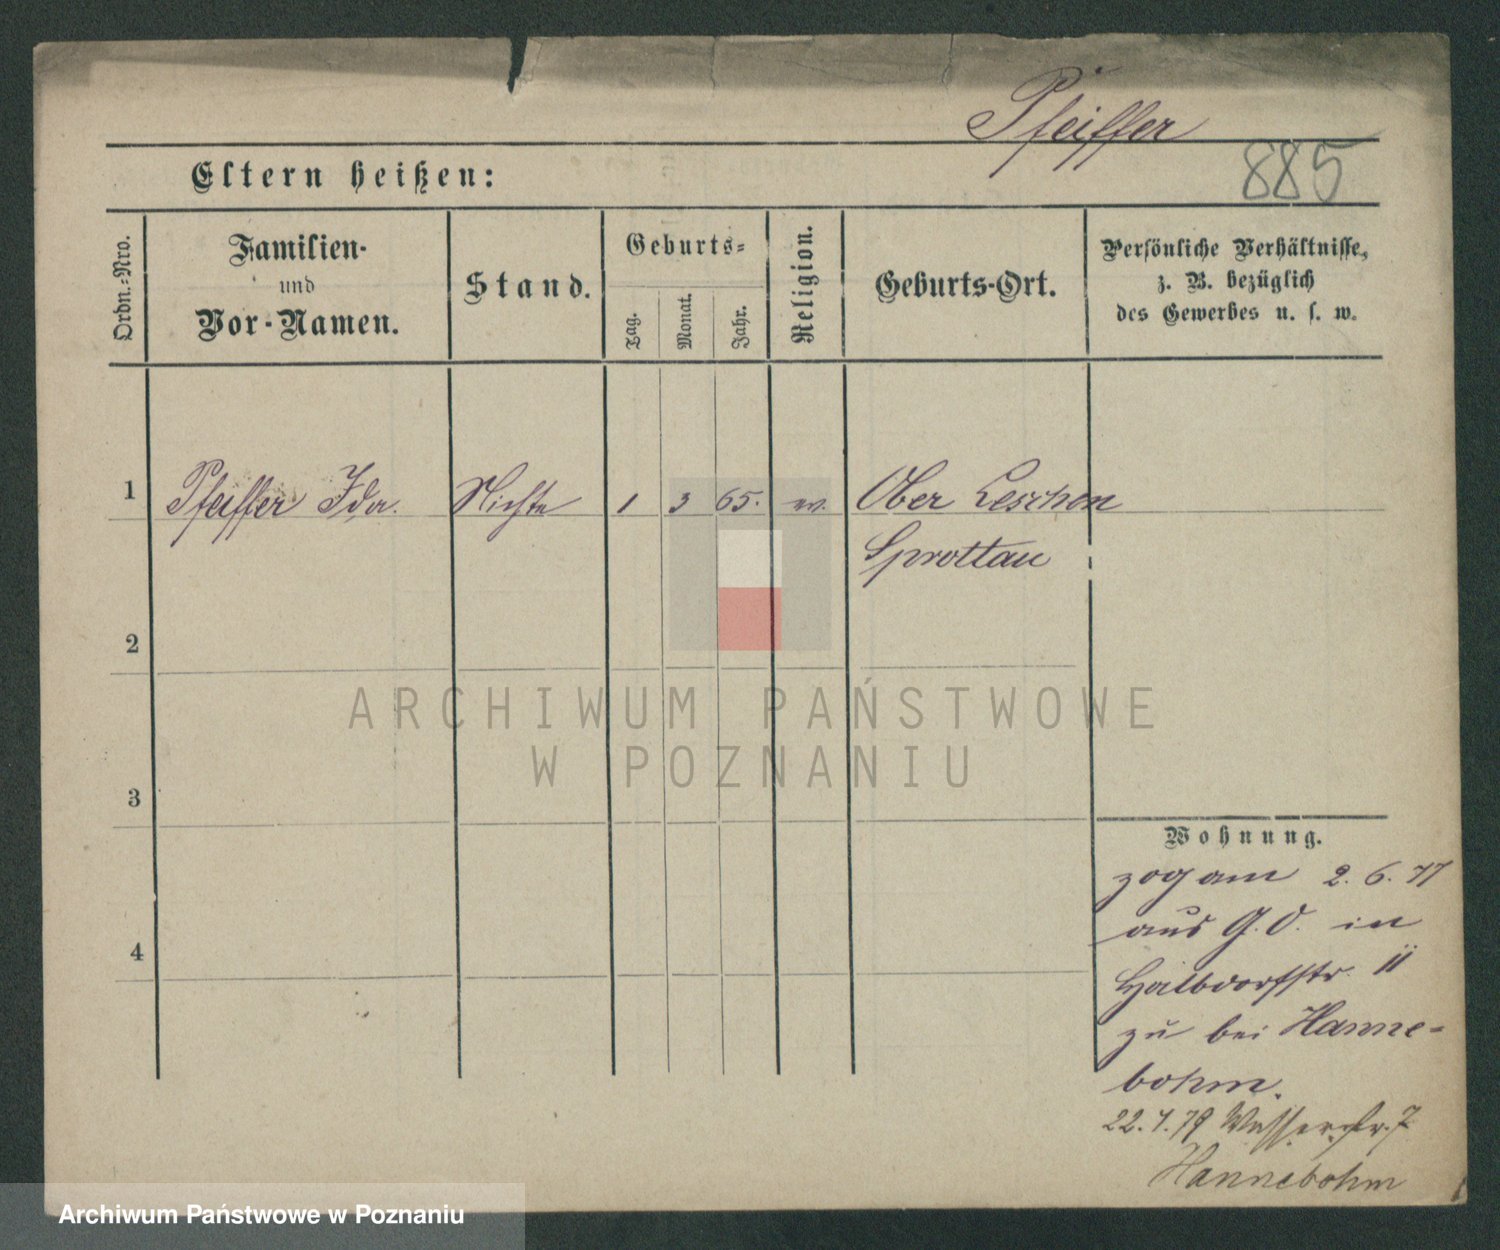 Pfeiffer
885
Eltern heißen:
Ordn.-Nro.
Familien-
und
Vor-Namen.
Stand.
Geburts-
Tag.
Monat.
Jahr.
Religion.
Geburts-Ort.
Persönliche Verhältnisse,
z. B. bezüglich
des Gewerbes u. s. w.
1 Pfeiffer Ida. Nichte 1 3 65. ev. Ober Leschen
Sprottau
2
3
4
Wohnung.
zog am 2. 6. 77
aus G. O. in
Halbdorfstr. 11
zu bei Hanne-
bohm.
22. 4. 79 Wasserstr. 7
Hannebohm
ARCHIWUM PAŃSTWOWE
W POZNANIU
Archiwum Państwowe w Poznaniu